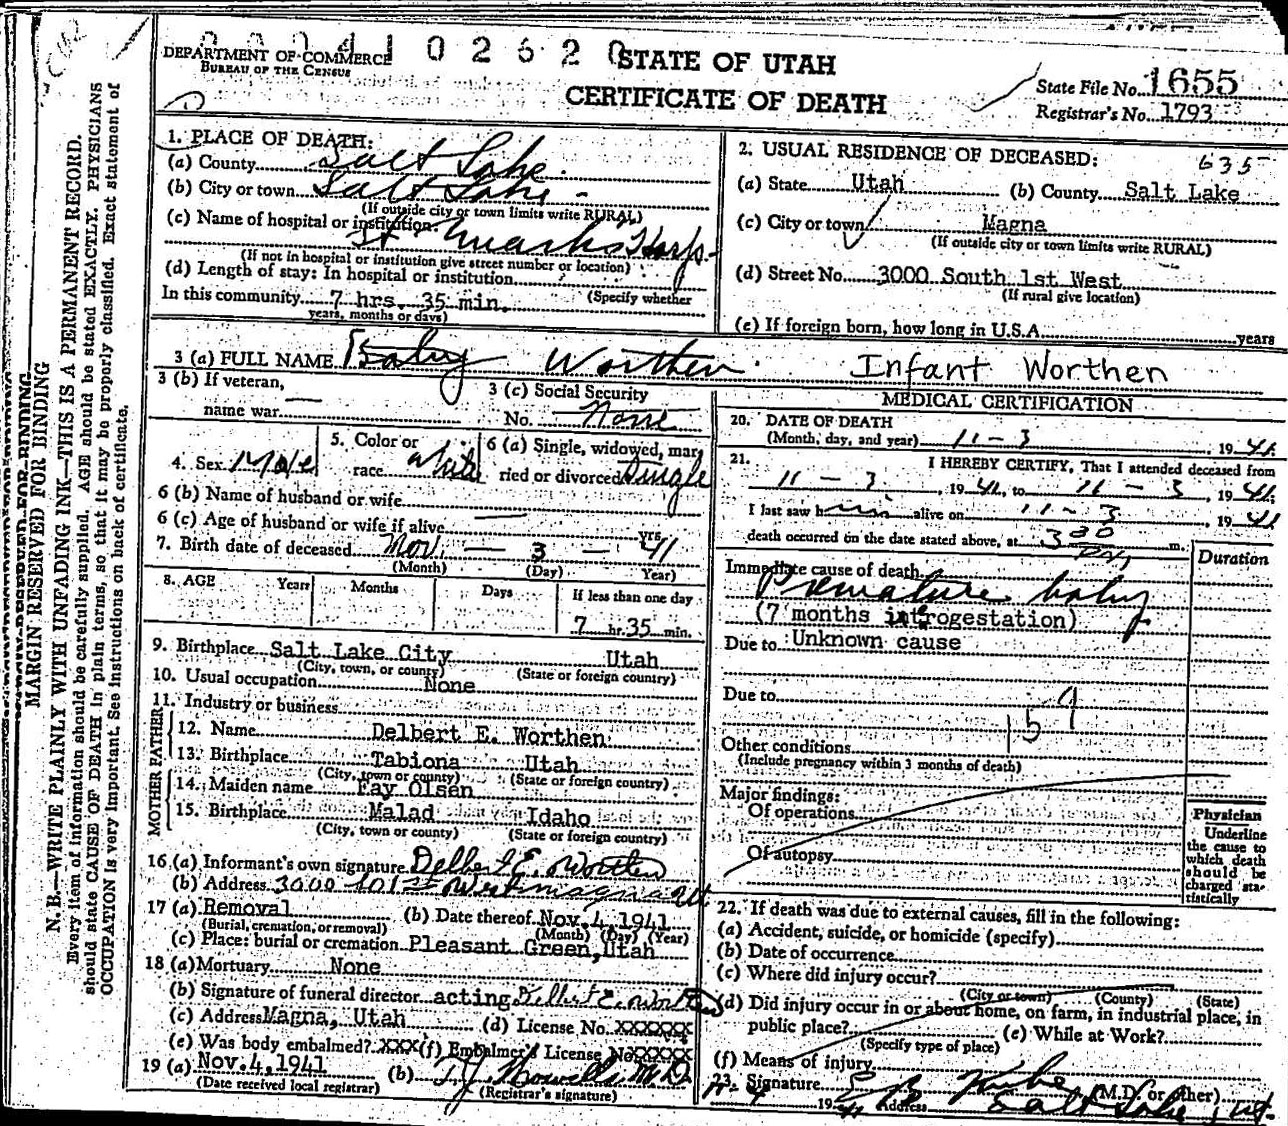 DEPARTMENT OF COMMERCE
BUREAU OF THE CENSUS
4 1 0 2 6 2 0
STATE OF UTAH
CERTIFICATE OF DEATH
State File No. 1655
Registrar's No. 1793
MARGIN RESERVED FOR BINDING
N. B.—WRITE PLAINLY WITH UNFADING INK—THIS IS A PERMANENT RECORD.
Every item of information should be carefully supplied. AGE should be stated EXACTLY. PHYSICIANS
should state CAUSE OF DEATH in plain terms, so that it may be properly classified. Exact statement of
OCCUPATION is very important. See instructions on back of certificate.
1. PLACE OF DEATH:
(a) County Salt Lake.
(b) City or town Salt Lake -
(If outside city or town limits write RURAL)
(c) Name of hospital or institution:
St Marks Hosp-
(If not in hospital or institution give street number or location)
(d) Length of stay: In hospital or institution
In this community 7 hrs. 35 min. (Specify whether
years, months or days)
2. USUAL RESIDENCE OF DECEASED: 635
(a) State Utah (b) County Salt Lake
(c) City or town Magna
(If outside city or town limits write RURAL)
(d) Street No. 3000 South 1st West
(If rural give location)
(e) If foreign born, how long in U.S.A. years
3 (a) FULL NAME Baby Worthen. Infant Worthen
3 (b) If veteran,
name war —
3 (c) Social Security
No. None
4. Sex Male
5. Color or
race White
6 (a) Single, widowed, mar
ried or divorced Single
6 (b) Name of husband or wife
6 (c) Age of husband or wife if alive — yrs.
7. Birth date of deceased Nov. — 3 — 41
(Month) (Day) Year)
8. AGE Years Months Days If less than one day
7 hr. 35 min.
9. Birthplace Salt Lake City Utah
(City, town, or county) (State or foreign country)
10. Usual occupation None
11. Industry or business
FATHER
12. Name Delbert E. Worthen
13. Birthplace Tabiona Utah
(City, town or county) (State or foreign country)
MOTHER
14. Maiden name Fay Olsen
15. Birthplace Malad Idaho
(City, town or county) (State or foreign country)
16 (a) Informant's own signature Delbert E. Worthen
(b) Address 3000 So 1st West Magna Ut
17 (a) Removal (b) Date thereof Nov. 4, 1941
(Burial, cremation, or removal) (Month) (Day) (Year)
(c) Place: burial or cremation Pleasant Green, Utah
18 (a) Mortuary None
(b) Signature of funeral director acting Delbert E. Worthen
(c) Address Magna, Utah (d) License No. XXXXXX
(e) Was body embalmed? XXX (f) Embalmer's License No XXXXX
19 (a) Nov. 4, 1941 (b) T. J. Howells M.D.
(Date received local registrar) (Registrar's signature)
MEDICAL CERTIFICATION
20. DATE OF DEATH
(Month, day, and year) 11 - 3, 19 41.
21. I HEREBY CERTIFY, That I attended deceased from
11 - 3, 19 41, to 11 - 3, 19 41;
I last saw him alive on 11 - 3, 19 41
death occurred on the date stated above, at 3 30 PM m.
Duration
Immediate cause of death
Premature baby
(7 months introgestation)
Due to Unknown cause
Due to
159
Other conditions
(Include pregnancy within 3 months of death)
Major findings:
Of operations
Of autopsy
Physician
Underline
the cause to
which death
should be
charged sta-
tistically
22. If death was due to external causes, fill in the following:
(a) Accident, suicide, or homicide (specify)
(b) Date of occurrence
(c) Where did injury occur?
(City or town) (County) (State)
(d) Did injury occur in or about home, on farm, in industrial place, in
public place? (e) While at Work?
(Specify type of place)
(f) Means of injury
23. Signature (M.D. or other)
11-4 19 41 Address Salt Lake, Ut.